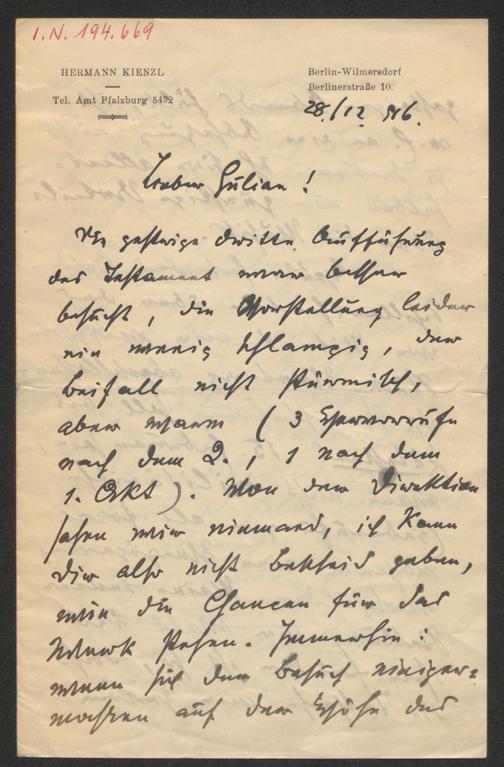 I.N. 194.669
HERMANN KIENZL
Tel. Amt Pfalzburg 5492
Berlin-Wilmersdorf
Berlinerstraße 10.
28./12. 916.
Lieber Julian!
Die gestrige dritte Aufführung
des Testament war besser
besucht, die Vorstellung leider
ein wenig schlampig, der
Beifall nicht stürmisch,
aber warm (3 Hervorrufe
nach dem 2., 1 nach dem
1. Akt). Von der Direktion
sahen wir niemand, ich kann
Dir also nicht Bescheid geben,
wie die Chancen für das
Werk stehen. Immerhin:
wenn sich der Besuch einiger-
maßen auf der Höhe des